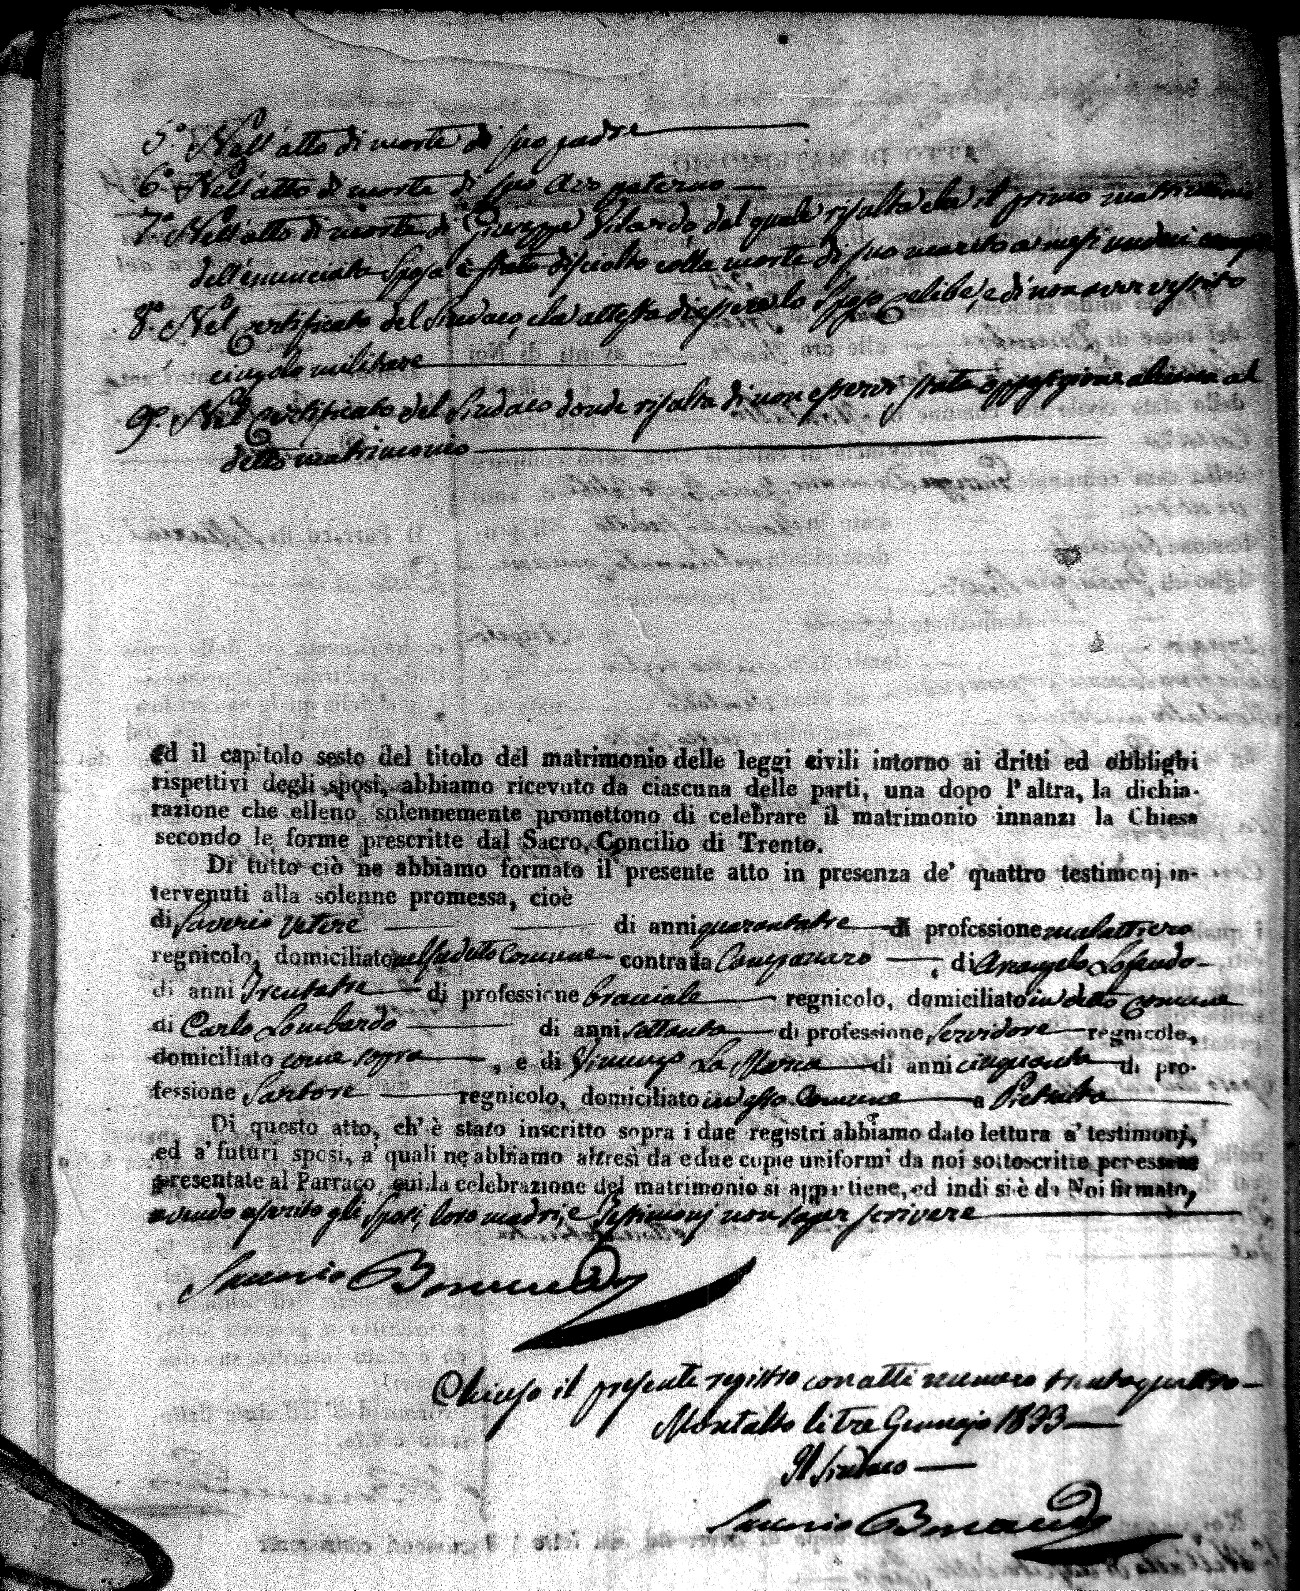 5.º Nell'atto di morte di suo padre
6.º Nell'atto di morte di suo Avo paterno
7.º Nell'atto di morte di Giuseppe Vilardo dal quale risulta che il primo matrimonio
dell'enunciata Sposa è stato disciolto colla morte di suo marito
8.º Nel Certificato del Sindaco, che attesta di essere lo Sposo celibe, e di non aver vestito
cingolo militare
9.º Nel Certificato del Sindaco donde risulta di non esservi stata opposizione alcuna al
detto matrimonio
ed il capitolo sesto del titolo del matrimonio delle leggi civili intorno ai dritti ed obblighi
rispettivi degli sposi, abbiamo ricevuto da ciascuna delle parti, una dopo l'altra, la dichia-
razione che elleno solennemente promettono di celebrare il matrimonio innanzi la Chiesa
secondo le forme prescritte dal Sacro Concilio di Trento.
Di tutto ciò ne abbiamo formato il presente atto in presenza de' quattro testimonj in-
tervenuti alla solenne promessa, cioè
di Saverio Vetere di anni quarantatre di professione mulattiero
regnicolo, domiciliato nel sudetto Comune contrada Campanaro di Arangelo Losardo
di anni Trentatre di professione bracciale regnicolo, domiciliato in detto Comune
di Carlo Lombardo di anni settanta di professione Servidore regnicolo,
domiciliato come sopra , e di La Marca di anni cinquanta di pro-
fessione Sartore regnicolo, domiciliato in esso Comune a Pietralta
Di questo atto, ch' è stato inscritto sopra i due registri abbiamo dato lettura a' testimonj,
ed a' futuri sposi, a' quali ne abbiamo altresì da e due copie uniformi da noi sottoscritte per essere
presentate al Parraco, cui la celebrazione del matrimonio si appartiene, ed indi si è da Noi firmato,
avendo asserito gli Sposi, loro madri, e Testimonj non saper scrivere
Chiuso il presente registro con atti numero trentaquattro
Montalto li tre Gennajo 1833
Il Sindaco